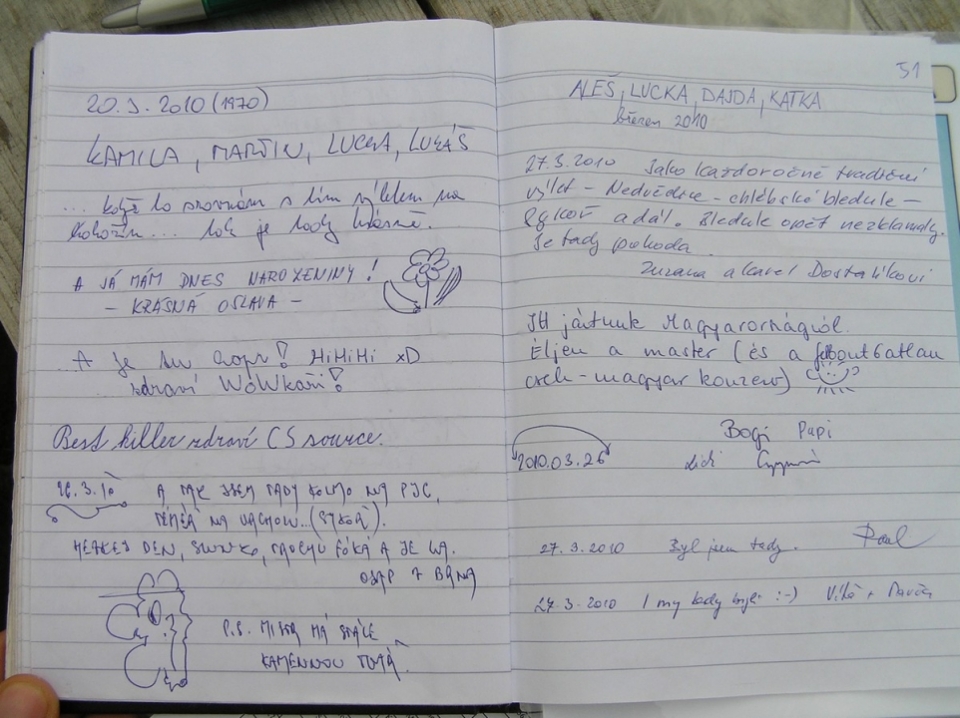 20.3.2010 (1970)
KAMILA, MARTIN, LUCKA, LUKÁŠ
... když to srovnám s tím výletem na
... tak je tady krásně.
A JÁ MÁM DNES NAROZENINY!
- KRÁSNÁ OSLAVA -
A je tu ! HiHiHi xD
zdraví WoWkaři!
Best killer zdraví CS source.
26.3.10 A TAK JSEM TADY KOLMO NA
TÉMĚŘ NA VRCHOLU...(SÝKOŘ).
DEN, TROCHU FÓKÁ A JE
OSAP Z BRNA
P.S. MÁ STÁLE
KAMENNOU
51
ALEŠ, LUCKA, DAJDA, KATKA
březen 2010
27.3.2010 Jako každoročně tradiční
výlet - Nedvědice - chlébské bledule -
Sýkoř a dál. Bledule opět nezklamaly.
Je tady pohoda.
Zuzana a Karel Dostalíkovi
Itt jártunk Magyarországról.
Éljen a master (és a
cseh-magyar konzerv)
Bogi Papi
2010.03.26 Lidi
27.3.2010 Byl jsem tady.
27.3.2010 I my tady byli :-)